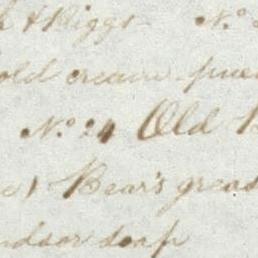 & Riggs No.
old cream
No. 24 Old
Bear's greas
ndsor soap